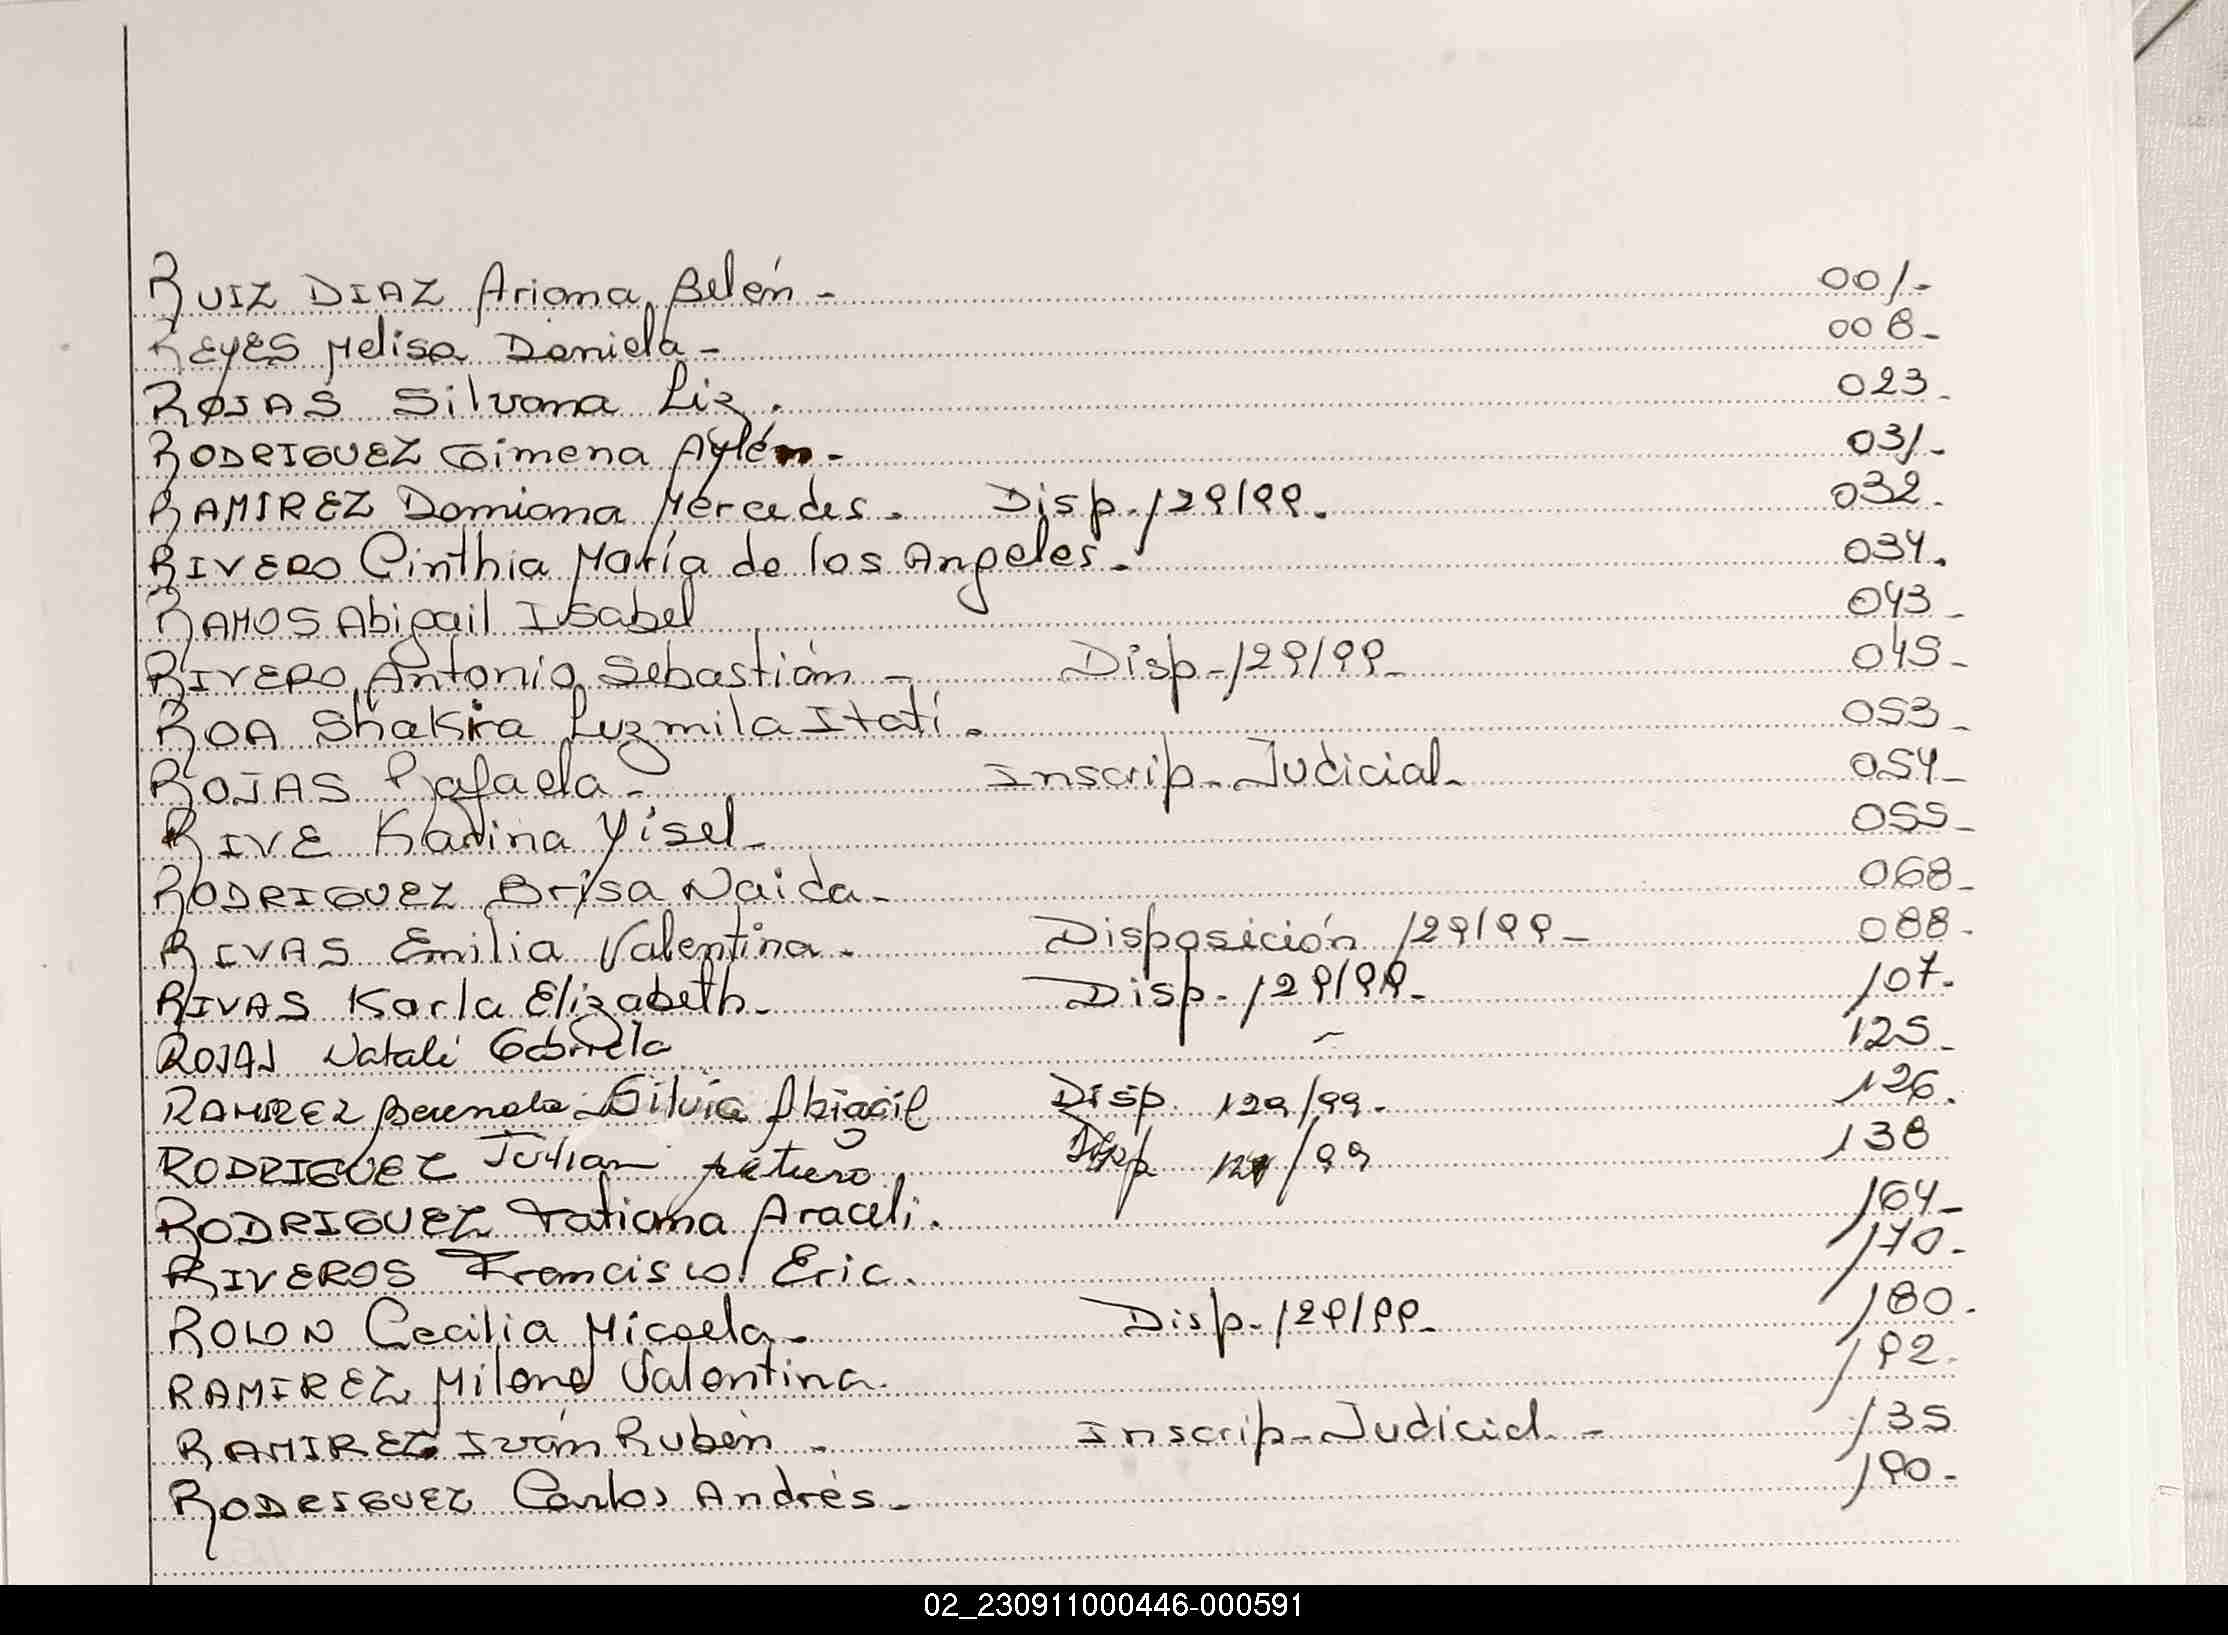 RUIZ DIAZ Ariana Belén - 001.-
REYES Melisa Daniela - 008-
ROJAS Silvana Liz. 023-
RODRIGUEZ Gimena Aylén.- 031.-
RAMIREZ Damiana Mercedes. Disp. 129/99. 032.
RIVERO Cinthia María de los Angeles. 034.
RAMOS Abigail Isabel 043-
RIVERO Antonio Sebastián - Disp-129/99- 045-
ROA Shakira Luzmila Itatí. 053-
ROJAS Rafaela- Inscrip-Judicial- 054-
RIVE Karina Yisel- 055-
RODRIGUEZ Brisa Naida- 068-
RIVAS Emilia Valentina. Disposición 129/99- 088-
RIVAS Karla Elizabeth- Disp. 129/99- 107.
ROJAS Natali Gabriela 125-
RAMIREZ Silvia Abigail Disp. 129/99- 126.
RODRIGUEZ Julian Disp /99 138
RODRIGUEZ Tatiana Araceli. 164-
RIVEROS Francisco Eric. 170-
ROLON Cecilia Micaela- Disp-129/99- 180.
RAMIREZ Milena Valentina. 192.
RAMIREZ Iván Rubén - Inscrip-Judicial - 135
RODRIGUEZ Carlos Andrés- 190-
02_230911000446-000591